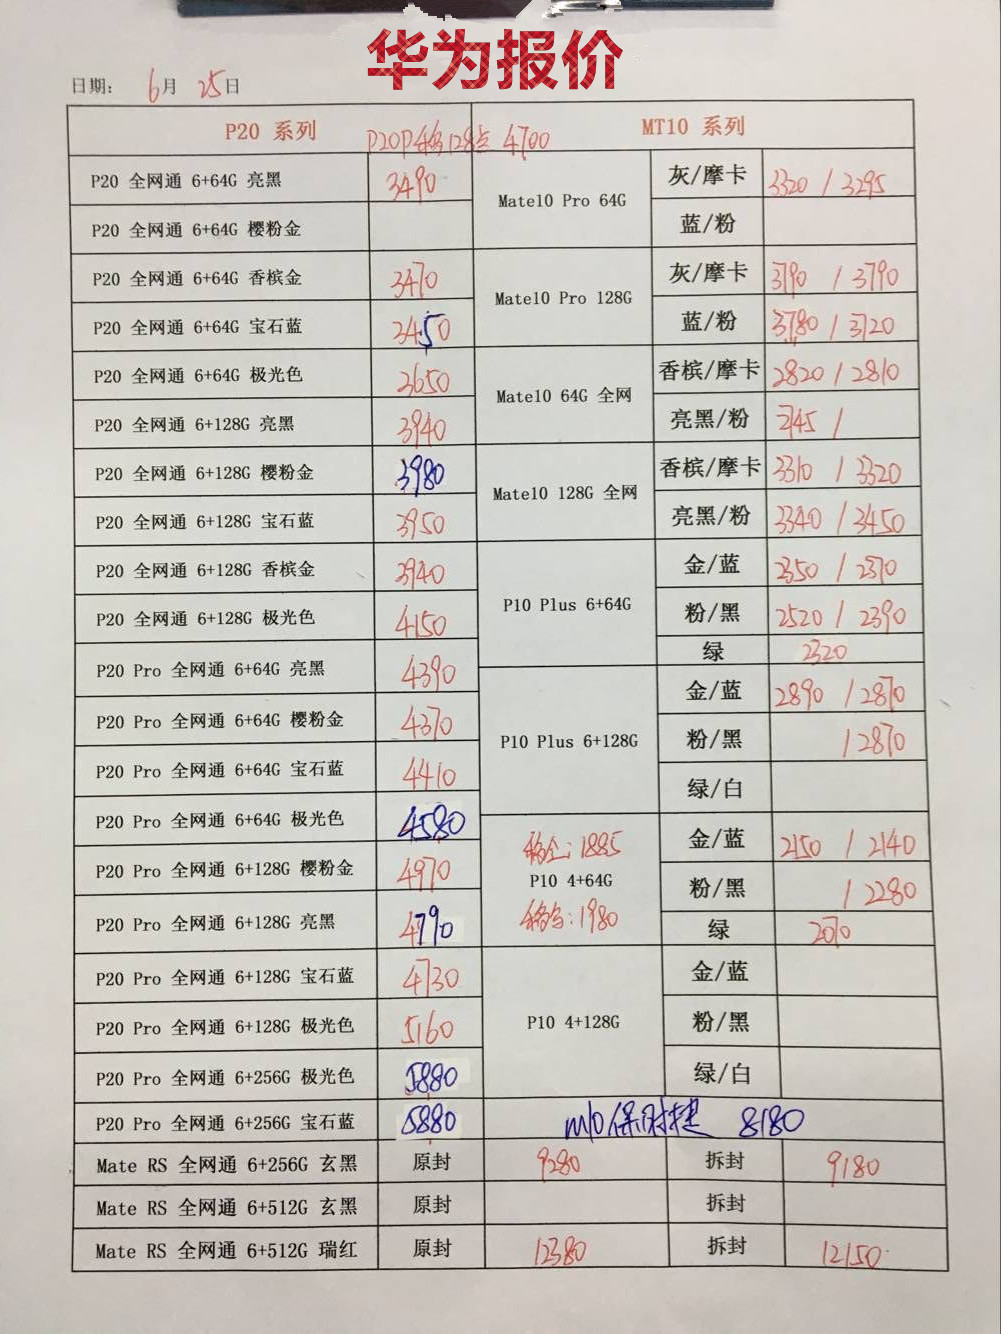 华为报价
日期: 6月 25日
P20 系列 MT10 系列
4700
P20 全网通 6+64G 亮黑 3490
P20 全网通 6+64G 樱粉金
P20 全网通 6+64G 香槟金 3470
P20 全网通 6+64G 宝石蓝 3450
P20 全网通 6+64G 极光色 3650
P20 全网通 6+128G 亮黑 3940
P20 全网通 6+128G 樱粉金 3980
P20 全网通 6+128G 宝石蓝 3950
P20 全网通 6+128G 香槟金 3940
P20 全网通 6+128G 极光色 4150
P20 Pro 全网通 6+64G 亮黑 4390
P20 Pro 全网通 6+64G 樱粉金 4370
P20 Pro 全网通 6+64G 宝石蓝 4410
P20 Pro 全网通 6+64G 极光色 4580
P20 Pro 全网通 6+128G 樱粉金 4970
P20 Pro 全网通 6+128G 亮黑 4790
P20 Pro 全网通 6+128G 宝石蓝 4730
P20 Pro 全网通 6+128G 极光色 5160
P20 Pro 全网通 6+256G 极光色 5880
P20 Pro 全网通 6+256G 宝石蓝 5880
Mate10 Pro 64G
灰/摩卡 3320 / 3295
蓝/粉
Mate10 Pro 128G
灰/摩卡 3790 / 3790
蓝/粉 3780 / 3720
Mate10 64G 全网
香槟/摩卡 2820 / 2810
亮黑/粉 2745 /
Mate10 128G 全网
香槟/摩卡 3310 / 3320
亮黑/粉 3340 / 3450
P10 Plus 6+64G
金/蓝 2350 / 2370
粉/黑 2520 / 2390
绿 2320
P10 Plus 6+128G
金/蓝 2890 / 2870
粉/黑 / 2870
绿/白
1885
P10 4+64G
1980
金/蓝 2150 / 2140
粉/黑 / 2280
绿 2070
P10 4+128G
金/蓝
粉/黑
绿/白
m10保时捷 8180
Mate RS 全网通 6+256G 玄黑 原封 9280 拆封 9180
Mate RS 全网通 6+512G 玄黑 原封 拆封
Mate RS 全网通 6+512G 瑞红 原封 12380 拆封 12150